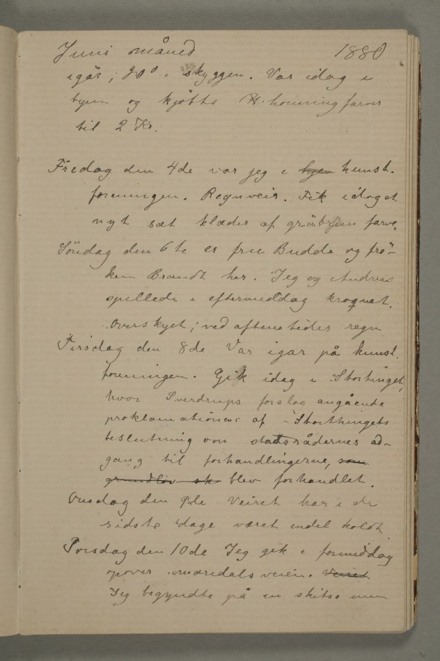 Juni måned 1880
igår; 20° i skyggen. Var idag i
byen og kjøbte honningfarver
til 2 Kr.
Fredag den 4de var jeg i byen kunst-
foreningen. Regnveir. Fik idag et
nyt sæt klæder af gråbrun farve.
Söndag den 6te er fru Budde og frö-
ken Brandt her. Jeg og Andreas
spillede i eftermiddag kroquet.
Overskyet; ved aftenstider regn
Tirsdag den 8de Var igår på kunst-
foreningen. Gik idag i Storthinget,
hvor Sverdrups forslag angående
proklamationen af Storthingets
beslutning om statsrådernes ad-
gang til forhandlingerne, som
grundlov blev forhandlet.
Onsdag den 9de Veiret har i de
sidste dage været endel koldt.
Torsdag den 10de Jeg gik i formiddag
opover maridalsveien. Veiret
Jeg begyndte på en skitse men